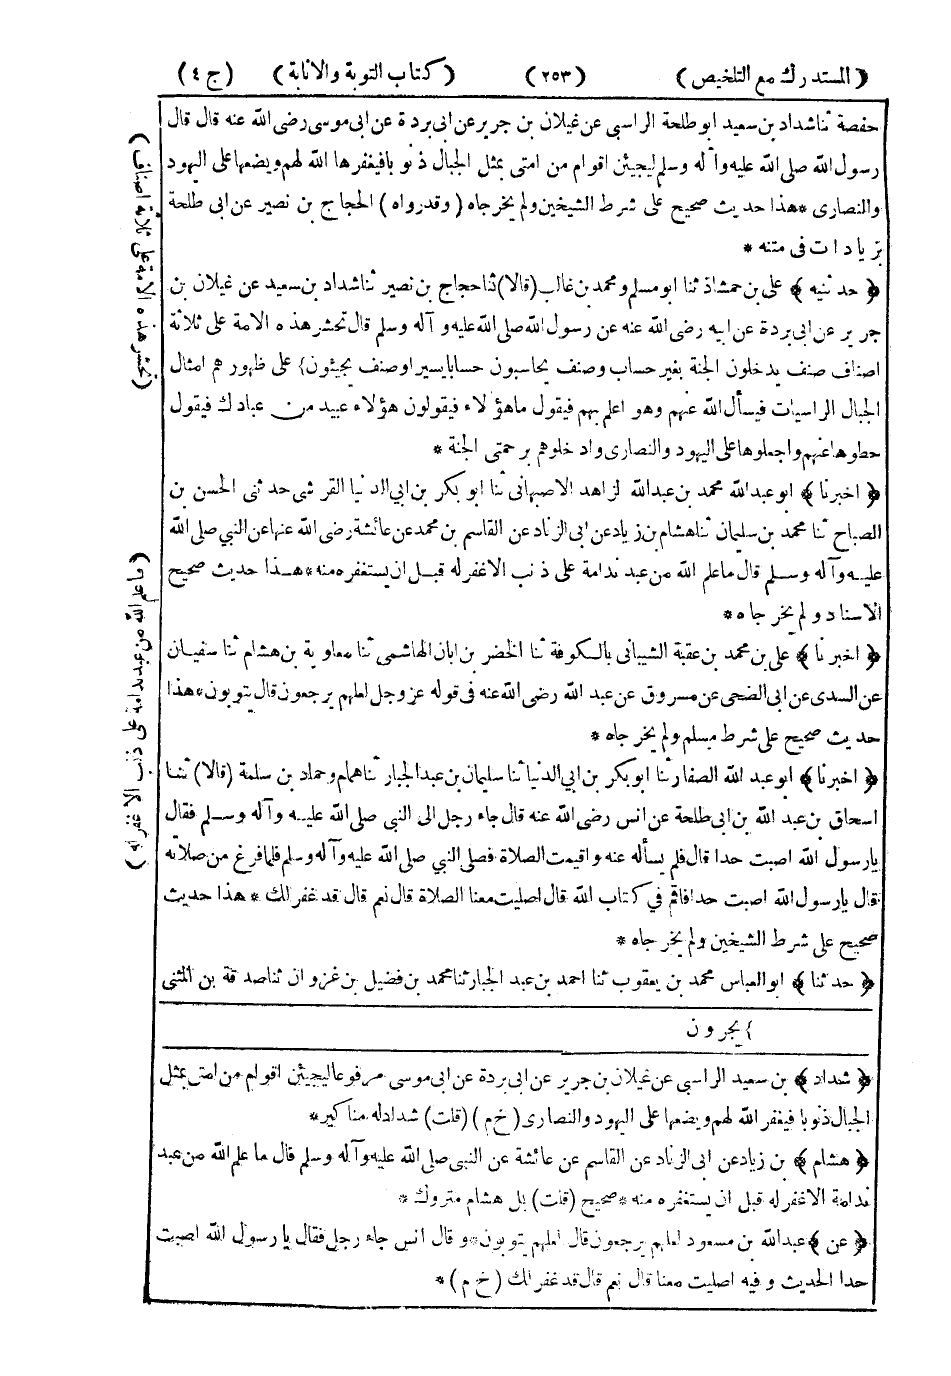 (المستدرك مع التلخيص) (٢٥٣) (كتاب التوبة والانابة) (ج ٤)
حفصة ثنا شداد بن سعيد ابو طلحة الراسبي عن غيلان بن جرير عن ابى بردة عن ابى موسى رضى الله عنه قال قال
رسول الله صلى الله عليه وآله وسلم ليجيئن اقوام من امتى بمثل الجبال ذنوبا فيغفرها الله لهم ويضعها على اليهود
والنصارى * هذا حديث صحيح على شرط الشيخين ولم يخرجاه (وقدرواه) الحجاج بن نصير عن ابى طلحة
بزيادات فى متنه *
﴿ حدثنيه ﴾ على بن حمشاذ ثنا ابو مسلم ومحمد بن غالب (قالا) ثنا حجاج بن نصير ثنا شداد بن سعيد عن غيلان بن
جرير عن ابى بردة عن ابيه رضى الله عنه عن رسول الله صلى الله عليه وآله وسلم قال تحشر هذه الامة على ثلاثة
اصناف صنف يدخلون الجنة بغير حساب وصنف يحاسبون حسابا يسيرا وصنف يجيئون} على ظهورهم امثال
الجبال الراسيات فيسأل الله عنهم وهو اعلم بهم فيقول ماهؤلاء فيقولون هؤلاء عبيد من عبادك فيقول
حطوها عنهم واجعلوها على اليهود والنصارى وادخلوهم برحمتى الجنة *
﴿ اخبرنا ﴾ ابو عبدالله محمد بن عبدالله الزاهد الاصبهانى ثنا ابو بكر بن ابي الدنيا القرشى حدثنى الحسن بن
الصباح ثنا محمد بن سليمان ثنا هشام بن زياد عن ابى الزناد عن القاسم بن محمد عن عائشة رضى الله عنها عن النبي صلى الله
عليه وآله وسلم قال ما علم الله من عبد ندامة على ذنب الا غفر له قبل ان يستغفره منه * هذا حديث صحيح
الاسناد ولم يخرجاه *
﴿ اخبرنا ﴾ على بن محمد بن عقبة الشيبانى بالكوفة ثنا الخضر بن ابان الهاشمى ثنا معاوية بن هشام ثنا سفيان
عن السدى عن ابى الضحى عن مسروق عن عبد الله رضى الله عنه فى قوله عز وجل لعلهم يرجعون قال يتوبون * هذا
حديث صحيح على شرط مسلم ولم يخرجاه *
﴿ اخبرنا ﴾ ابو عبد الله الصفار ثنا ابو بكر بن ابي الدنيا ثنا سليمان بن عبد الجبار ثنا همام وحماد بن سلمة (قالا) ثنا
اسحاق بن عبد الله بن ابى طلحة عن انس رضى الله عنه قال جاء رجل الى النبى صلى الله عليه وآله وسلم فقال
يارسول الله اصبت حدا قال فلم يسأله عنه واقيمت الصلاة فصلى النبي صلى الله عليه وآله وسلم فلما فرغ من صلاته
قال يارسول الله اصبت حدا فاقم في كتاب الله قال اصليت معنا الصلاة قال نعم قال قد غفر لك * هذا حديث
صحيح على شرط الشيخين ولم يخرجاه *
﴿ حدثنا ﴾ ابو العباس محمد بن يعقوب ثنا احمد بن عبد الجبار ثنا محمد بن فضيل بن غزوان ثنا صدقة بن المثنى
} يجرون
﴿ شداد ﴾ بن سعيد الراسبي عن غيلان بن جرير عن ابى بردة عن ابى موسى مرفوعا ليجيئن اقوام من امتى بمثل
الجبال ذنوبا فيغفر الله لهم ويضعها على اليهود والنصارى (خ م) (قلت) شداد له مناكير *
﴿ هشام ﴾ بن زياد عن ابى الزناد عن القاسم عن عائشة عن النبى صلى الله عليه وآله وسلم قال ما علم الله من عبد
ندامة الا غفر له قبل ان يستغفره منه * صحيح (قلت) بل هشام متروك *
﴿ عن ﴾ عبدالله بن مسعود لعلهم يرجعون قال لعلهم يتوبون * وقال انس جاء رجل فقال يا رسول الله اصبت
حدا الحديث وفيه اصليت معنا قال نعم قال قد غفر لك (خ م) *
(تحشر هذه الامة على ثلاثة اصناف)
(ما علم الله من عبد ندامة على ذنب الا غفر له)